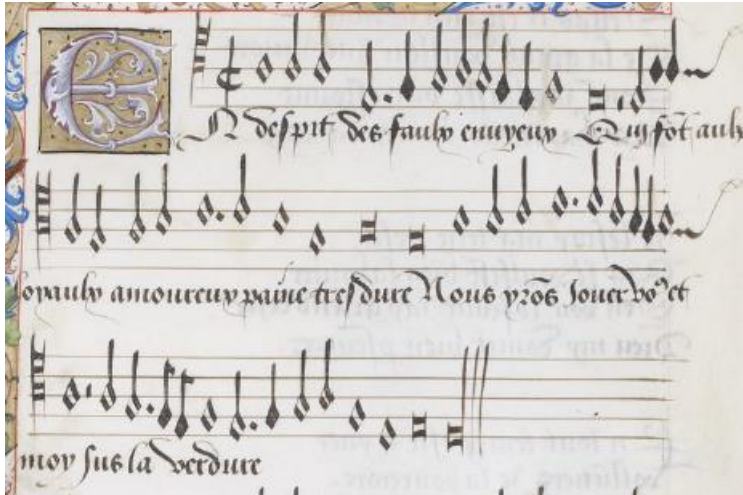 EN despit des faulx envyeux Qui font aulx
loyaulx amoureux paine tres dure Nous yrõs Jouer vo9 et
moy sus la verdure